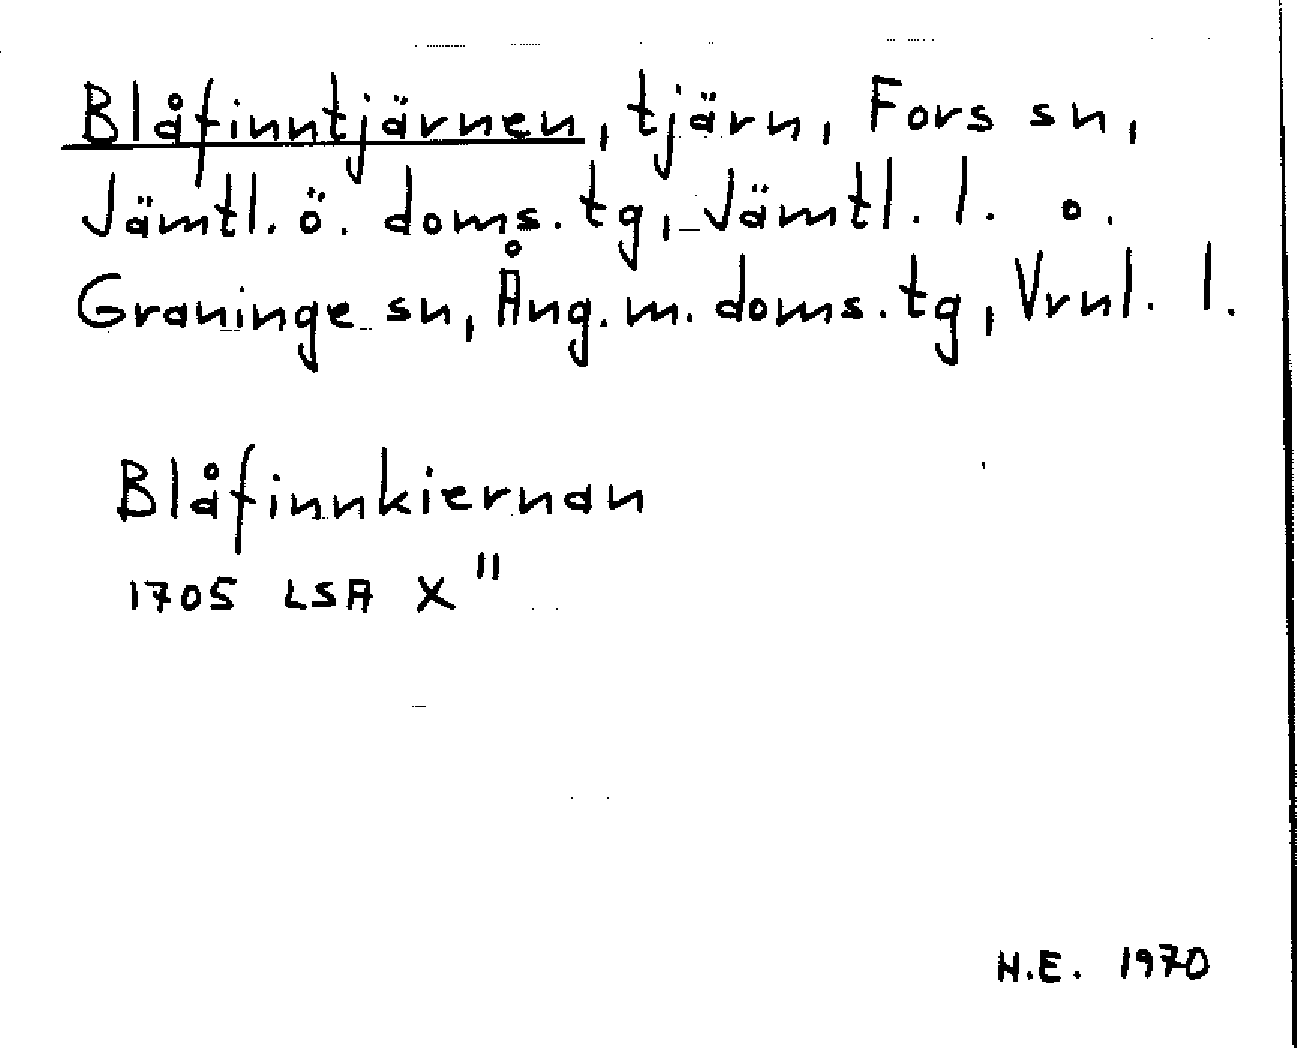 Blåfinntjärnen, tjärn, Fors sn,
Jämtl. ö. doms. tg, Jämtl. l. o.
Graninge sn, Ång. m. doms. tg, Vrnl. l.
Blåfinnkiernan
1705 LSA X"
H.E. 1970